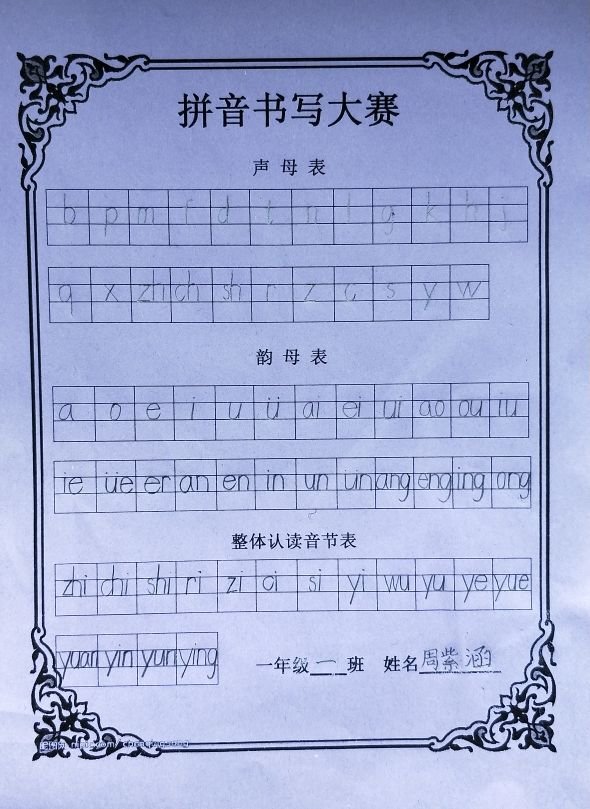 拼音书写大赛
声母表
b p m f d t n l g k h j
q x zh ch sh r z c s y w
韵母表
a o e i u ü ai ei ui ao ou iu
ie üe er an en in un ün ang eng ing ong
整体认读音节表
zhi chi shi ri zi ci si yi wu yu ye yue
yuan yin yun ying
一年级一班 姓名周紫涵